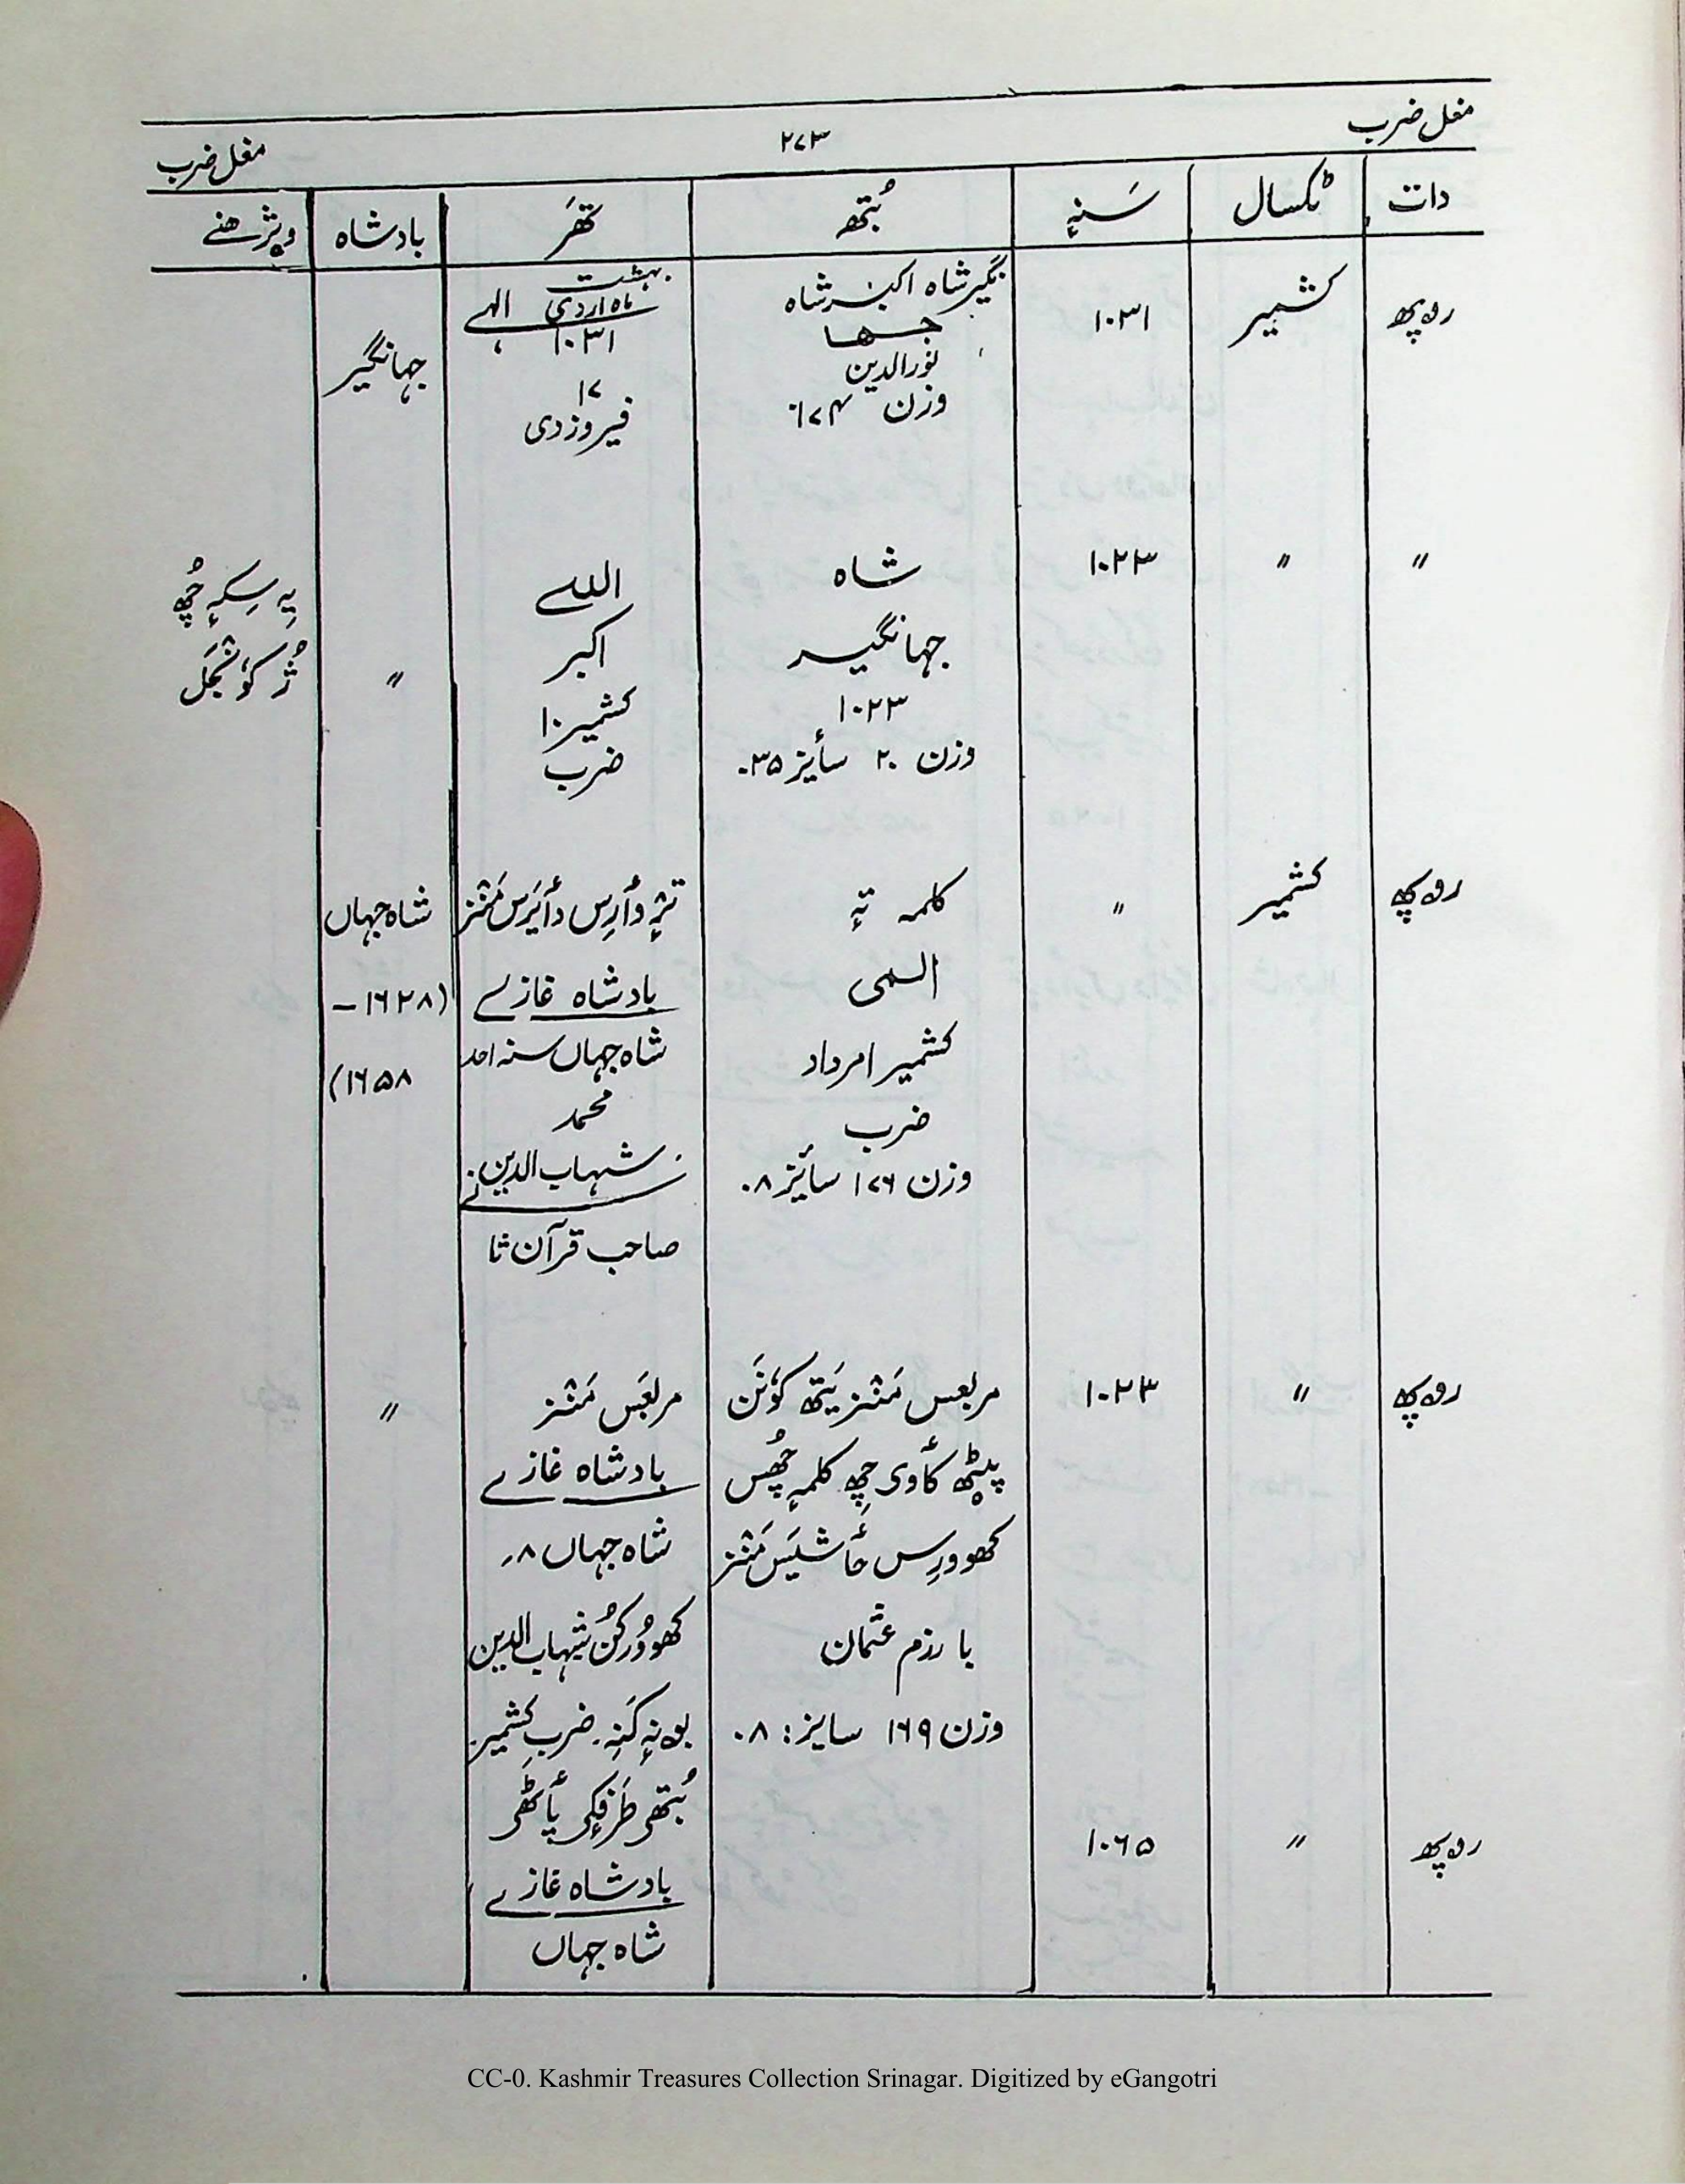 مغل ضرب
۲۷۳
مغل ضرب
دات ٹکسال سَنہٕ بُتھ تھَر بادشاہ ویژھنے
روپھ کشمیر ۱۰۳۱ نگیر شاہ اکبر شاہ
جہا
نورالدین
وزن ۱۷۴
بہشت
ماہ اردی الہے
۱۰۳۱
۱۷
فیروزدی
جہانگیر
〃 〃 ۱۰۲۳ شاہ
جہانگیر
۱۰۲۳
وزن ۲۰ سأیز ۳۵.
اللہ
اکبر
کشمیر ۱۰
ضرب
〃
یہِ سِکہٕ چُھ
ژکوٗنجَل
روپھ کشمیر 〃 کلمہ تہٕ
الہی
کشمیر امرداد
ضرب
وزن ۱۷۶ سأیز ۸.
ترٛ دأرِس دأیرَس مَنٛز
بادشاہ غازی
شاہ جہاں سنہ احد
محمد
شہاب الدین
صاحب قرآن ثا
شاہ جہاں
(۱۶۲۸ –
۱۶۵۸)
روپھ 〃 ۱۰۲۳ مربعس مَنٛز یَتھ کوٗنَن
پیٹھ کأوی چھِ کلمہٕ چُھس
کھوورِس حأشیَس مَنٛز
با رزم عثمان
وزن ۱۶۹ سایز: ۸.
مربعَس مَنٛز
بادشاہ غازے
شاہ جہاں ۸
کھووُرکُن شہاب الدین
بونہٕ کَنہِ. ضربِ کشمیر.
〃
روپھ 〃 ۱۰۶۵
بُتھی طرَفٕکۍ پأٹھۍ
بادشاہ غازے
شاہ جہاں
CC-0. Kashmir Treasures Collection Srinagar. Digitized by eGangotri